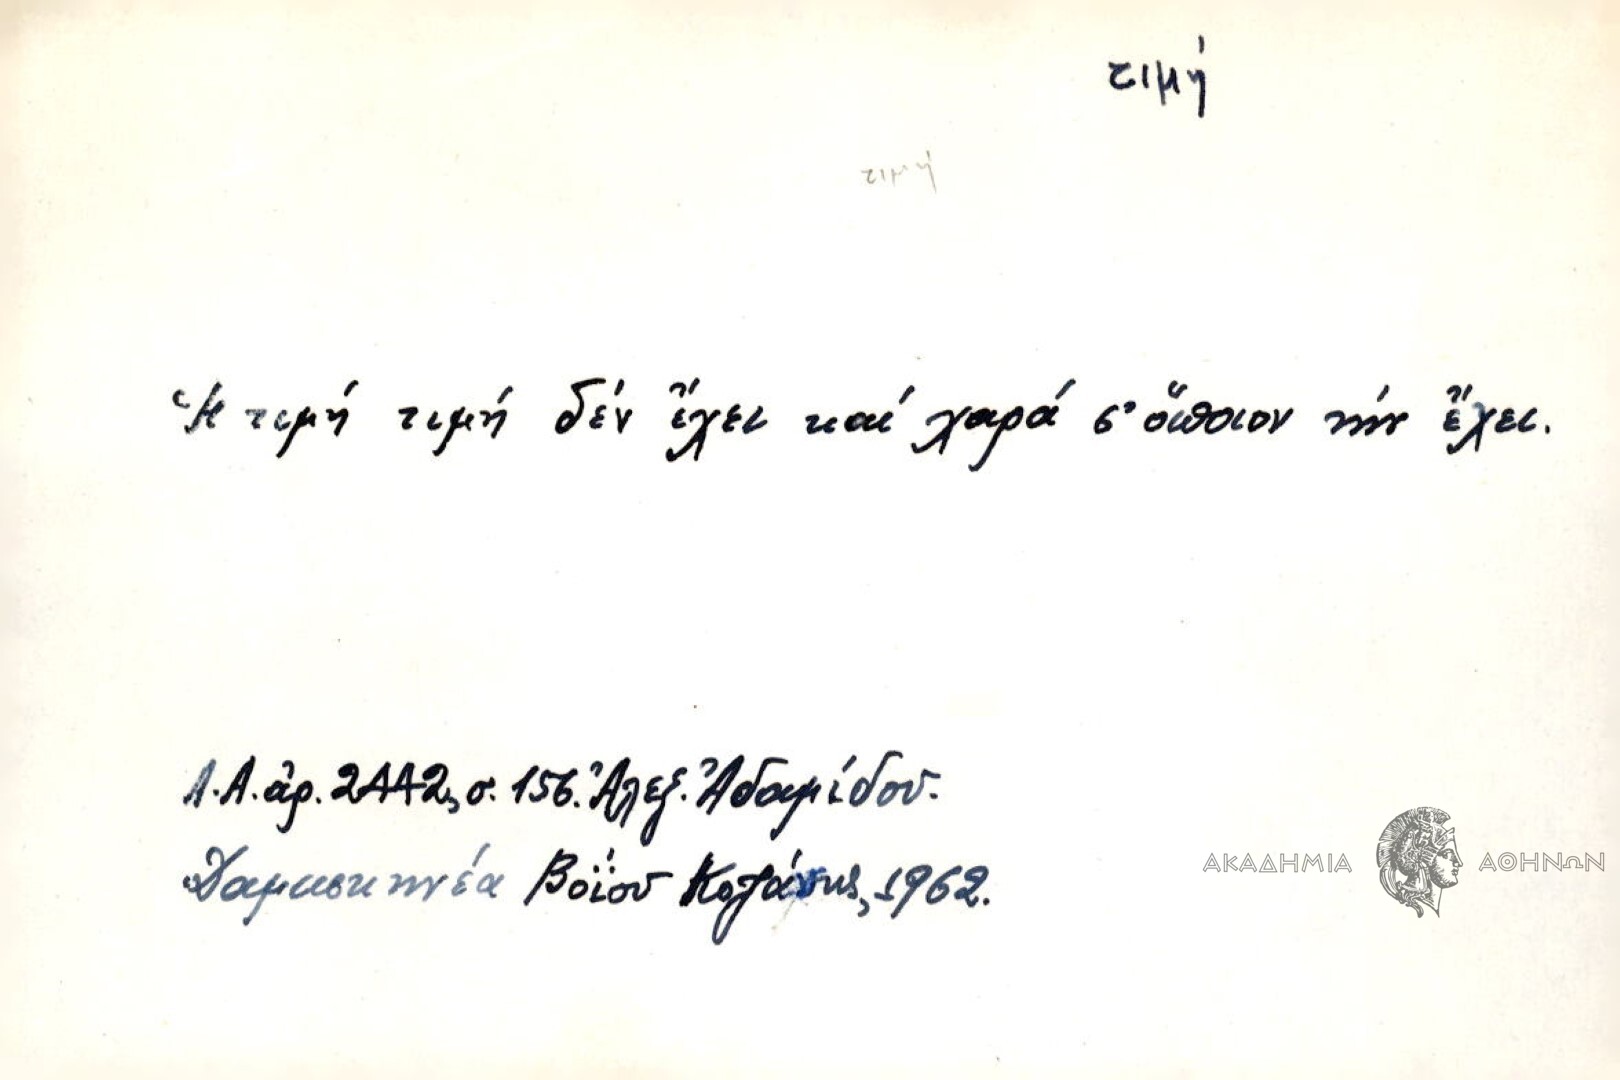 τιμή
τιμή
Ἡ τιμή τιμή δέν ἔχει καί χαρά σ' ὅποιον τήν ἔχει.
Λ.Α. ἀρ. 2442, σ. 156. Ἀλεξ. Ἀδαμίδου.
Δαμασκηνέα Βοΐου Κοζάνης, 1962.
ΑΚΑΔΗΜΙΑ ΑΘΗΝΩΝ